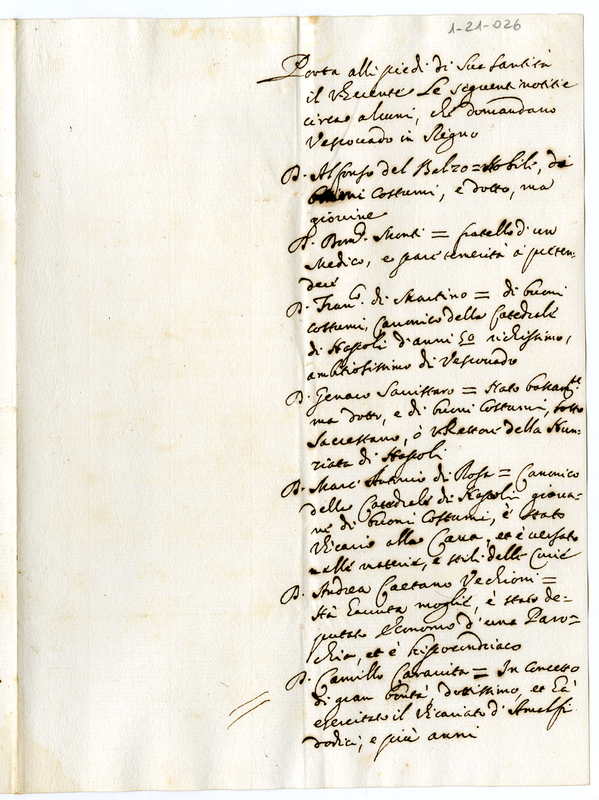 1-21-026
Porta alli piedi di Sua Santità
il Vicente le seguenti notitie
circa alcuni, che domandano
Vescovado in Regno
D. Alfonso del Balzo = Nobile, di
buoni costumi, e dotto, ma
giovine
D. Monti = fratello d'un
Medico, e pare temerità à preten-
dere
D. Fran.co di Martino = di buoni
costumi, Canonico della Catedrale
di Napoli d'anni 50 richissimo,
ambitiosissimo di Vescovado
D. Genaro = Nato
ma dotto, e di buoni costumi,
Sacrestano, ò Rettore della Nun-
tiata di Napoli
D. Marc' Antonio di Rosa = Canonico
della Catedrale di Napoli giova-
ne di buoni costumi, è stato
Vicario alla Cava, et è versato
nelle materie, e stili delle Curie
D. Andrea Caetano Vechioni =
Hà hauuta moglie, è stato de=
putato Economo d'una Paro=
chia, et è hipocondriaco
D. Camillo Caravita = In concetto
di gran bontà, dottissimo, et hà
esercitato il Vicariato d'Amalfi
dodici, e più anni